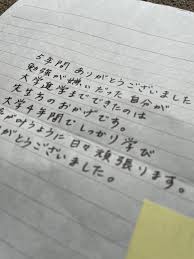 5年間 ありがとうございました
勉強が嫌いだった自分が
大学進学までできたのは
先生方のおかげです。
大学4年間でしっかり学び
が叶うように日々頑張ります。
がとうございました。